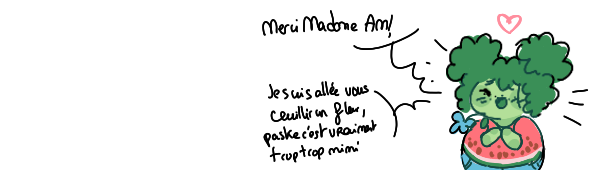 Merci Madame Am!
Je suis allée vous
ceuillir un fleur,
paske c'est vraiment
trop trop mimi